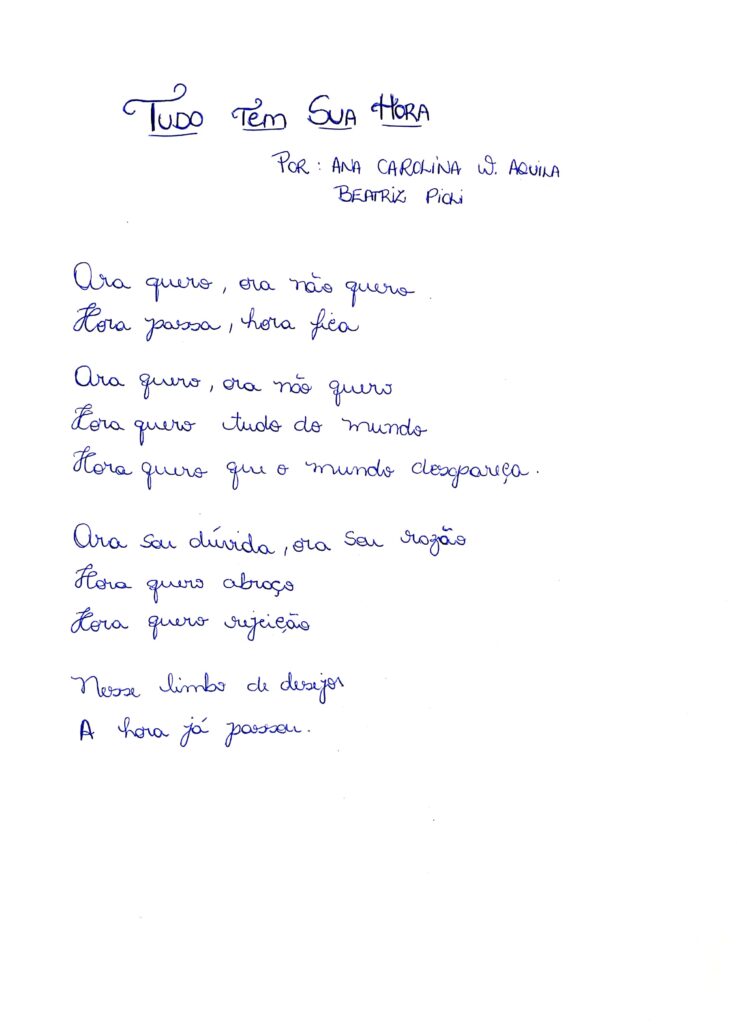 TUDO TEM SUA HORA
POR: ANA CAROLINA W. AQUILA
BEATRIZ PICHI
Ora quero, ora não quero
Hora passa, hora fica
Ora quero, ora não quero
Hora quero tudo do mundo
Hora quero que o mundo desapareça.
Ora sou dúvida, ora sou razão
Hora quero abraço
Hora quero rejeição
Nesse limbo de desejos
A hora já passou.